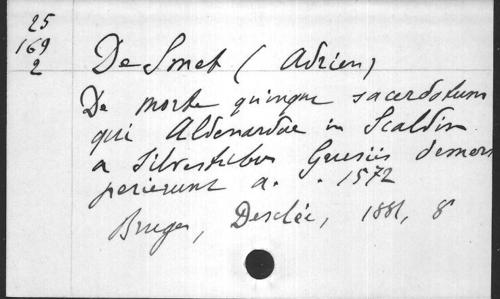 25
169
2
De Smet (Adrien)
De morte quinque sacerdotum
qui Aldenardae in Scaldim
a Silvestribus Gueusiis demersi
perierunt a. . 1572
Bruges, Desclée, 1881, 8°